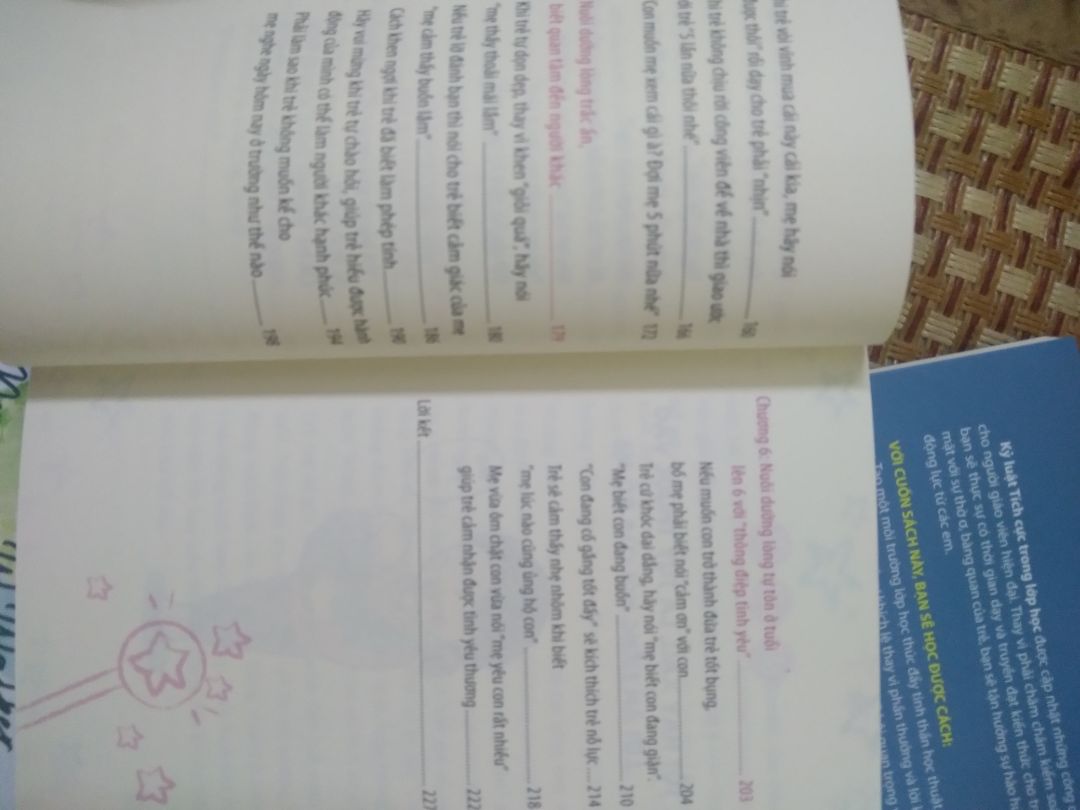 trẻ vòi vĩnh mua cái này cái kia, mẹ hãy nói
được thôi" rồi dạy cho trẻ phải "nhịn" 160
khi trẻ không chịu rời công viên để về nhà thì giao ước
"5 lần nữa thôi nhé" 166
Con muốn mẹ xem cái gì à? Đợi mẹ 5 phút nữa nhé" 172
Nuôi dưỡng lòng trắc ẩn,
biết quan tâm đến người khác 179
Khi trẻ tự dọn dẹp, thay vì khen "giỏi quá", hãy nói
"mẹ thấy thoải mái lắm" 180
Nếu trẻ lỡ đánh bạn thì nói cho trẻ biết cảm giác của mẹ
"mẹ cảm thấy buồn lắm" 186
Cách khen ngợi khi trẻ đã biết làm phép tính 190
Hãy vui mừng khi trẻ tự chào hỏi, giúp trẻ hiểu được hành
động của mình có thể làm người khác hạnh phúc 194
Phải làm sao khi trẻ không muốn kể cho
mẹ nghe ngày hôm nay ở trường như thế nào 198
Chương 6: Nuôi dưỡng lòng tự tôn ở tuổi
lên 6 với "thông điệp tình yêu" 203
Nếu muốn con trở thành đứa trẻ tốt bụng,
bố mẹ phải biết nói "cảm ơn" với con 204
Trẻ cứ khóc dai dẳng, hãy nói "mẹ biết con đang giận".
"Mẹ biết con đang buồn" 210
"Con đang cố gắng tốt đấy" sẽ kích thích trẻ nỗ lực .... 214
Trẻ sẽ cảm thấy nhẹ nhõm khi biết
"mẹ lúc nào cũng ủng hộ con" 218
Mẹ vừa ôm chặt con vừa nói "mẹ yêu con rất nhiều"
giúp trẻ cảm nhận được tình yêu thương 222
Lời kết 227
Kỷ luật Tích cực trong lớp học được cập nhật những công
cho người giáo viên hiện đại. Thay vì phải chăm chăm kiểm
bạn sẽ thực sự có thời gian dạy và truyền đạt kiến thức cho
mặt với sự thờ ơ, bàng quan của trẻ, bạn sẽ tận hưởng sự hào
động lực từ các em.
VỚI CUỐN SÁCH NÀY, BẠN SẼ HỌC ĐƯỢC CÁCH:
Tạo một môi trường lớp học thúc đẩy tinh thần học thuật
khích lệ thay vì phần thưởng và lời
quan trọng